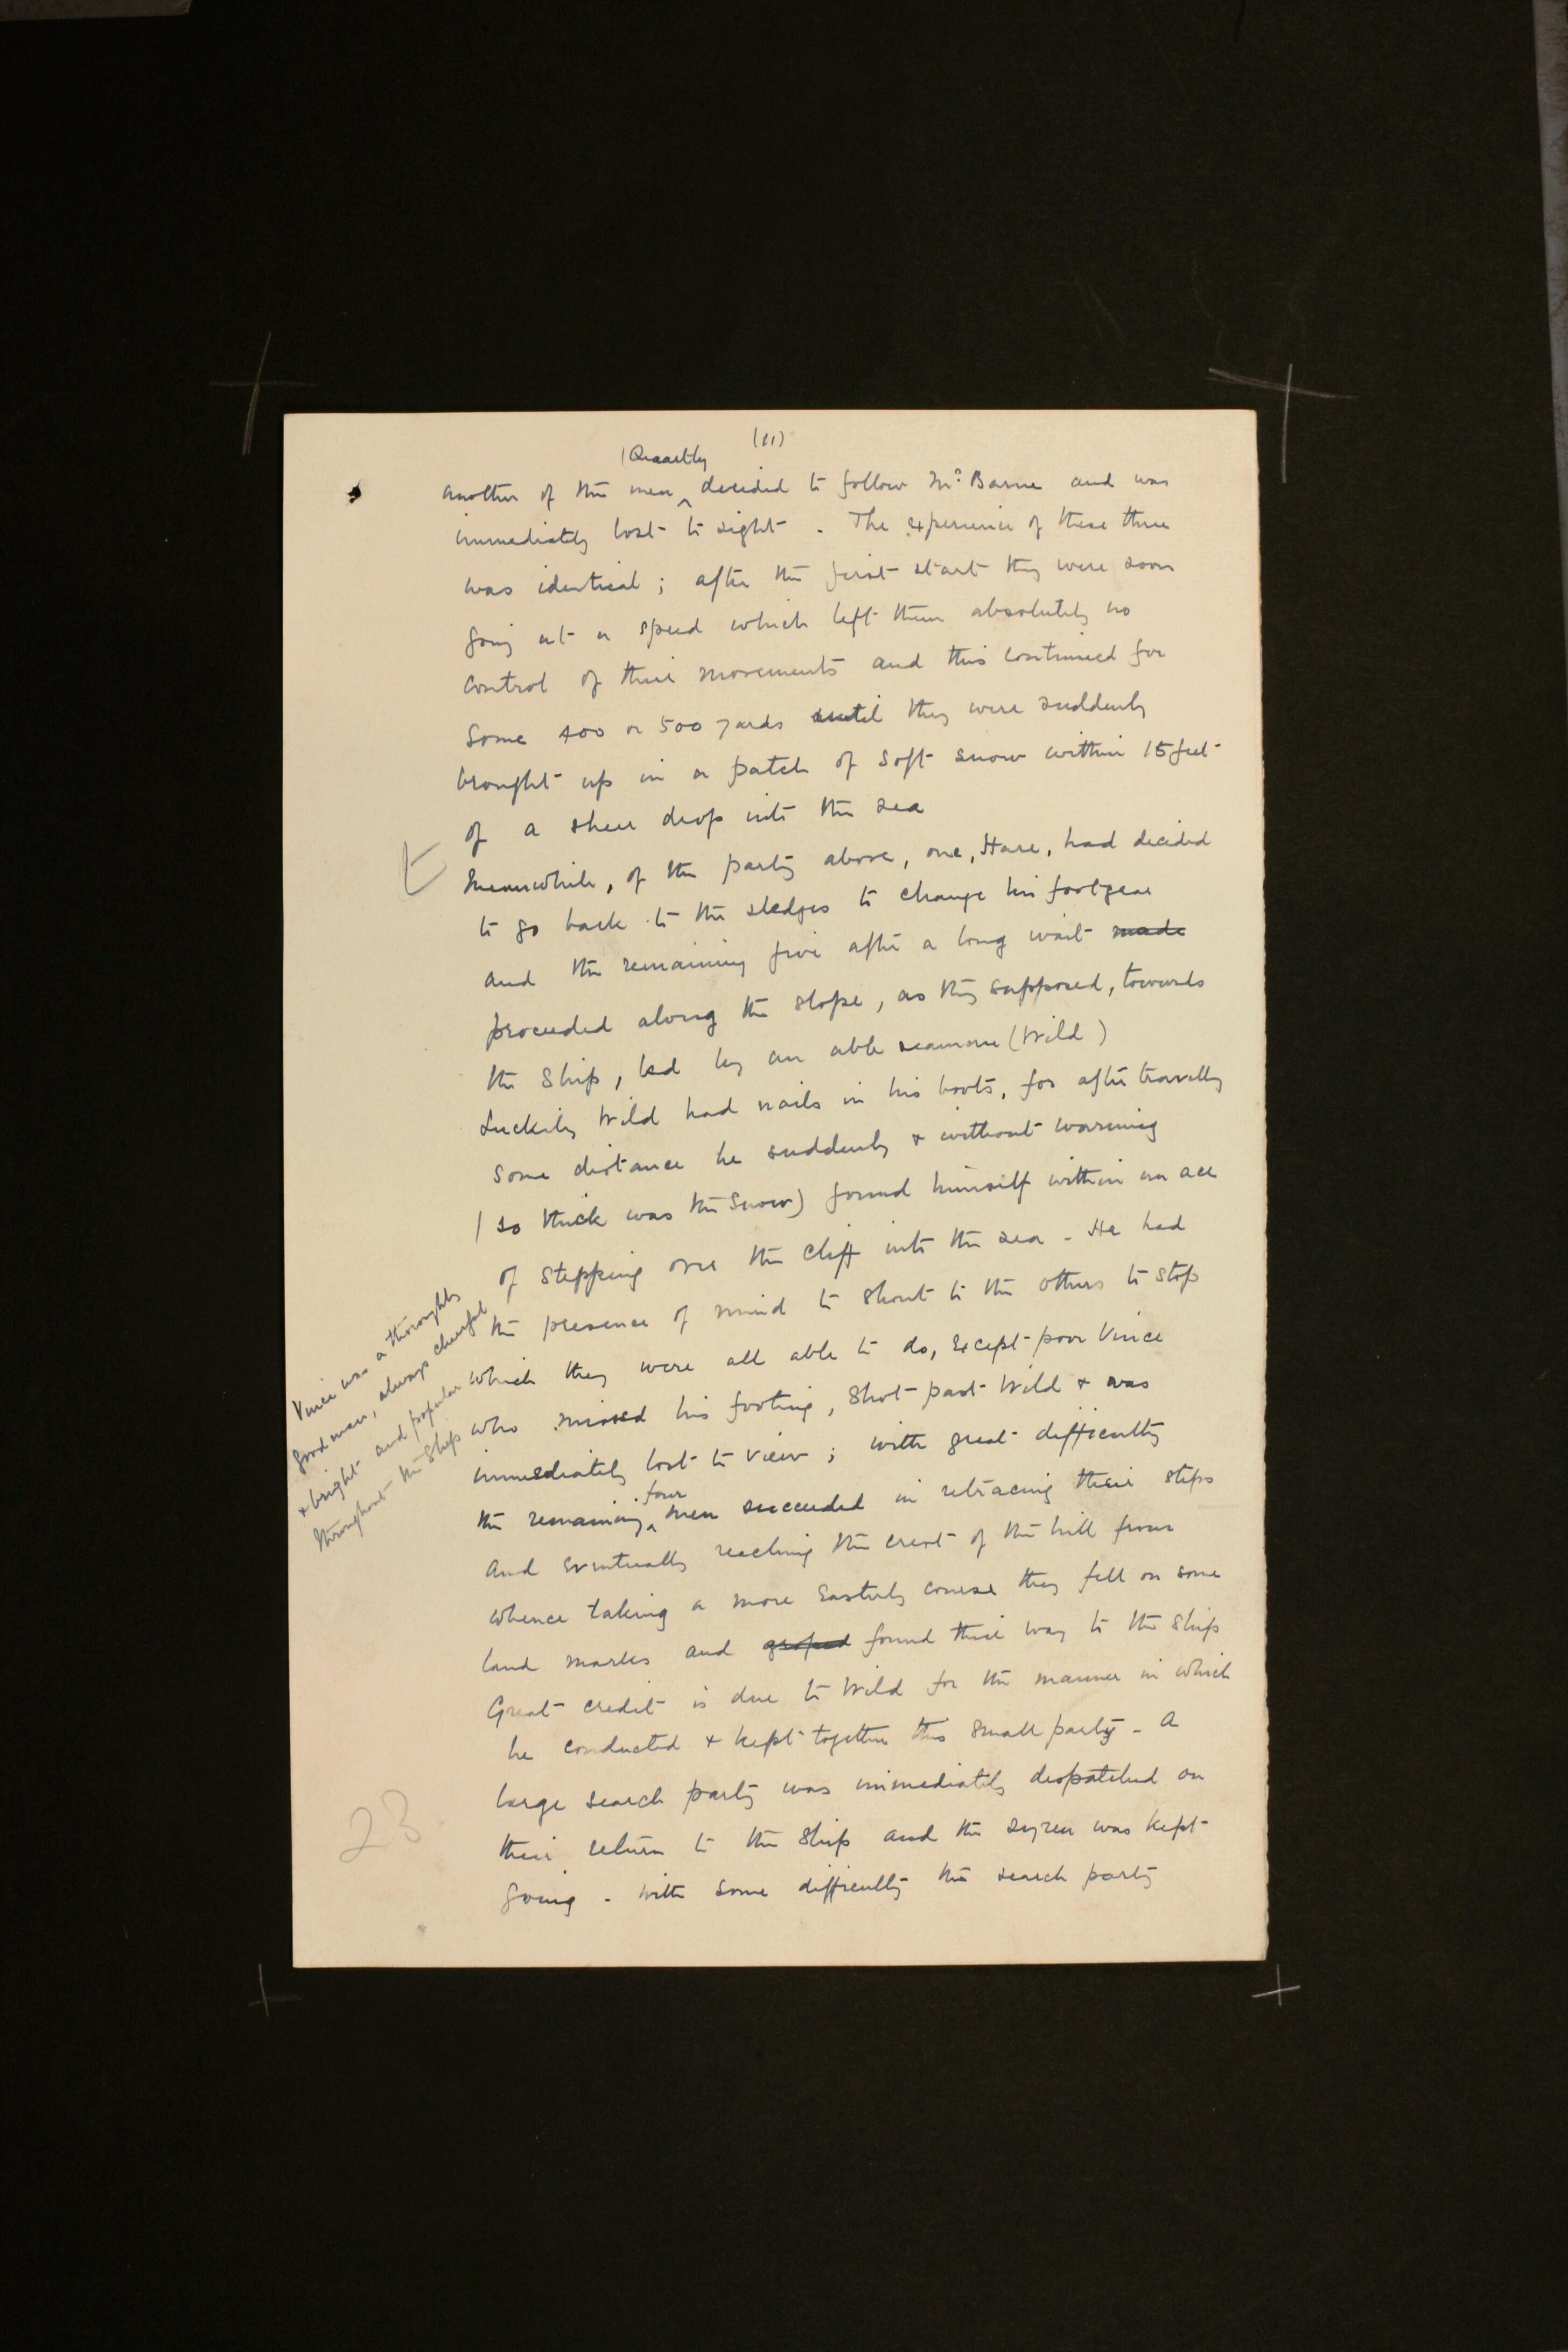 (11)
(Quartley
another of the men ^ decided to follow Mr Barne and was
immediately lost to sight. The experience of these three
was identical; after the first start they were soon
going at a speed which left them absolutely no
control of their movements and this continued for
some 400 or 500 yards until they were suddenly
brought up in a patch of soft snow within 15 feet
of a sheer drop into the sea
Meanwhile, of the party above, one, Hare, had decided
to go back to the sledges to change his footgear
and the remaining five after a long wait made
proceeded along the slope, as they supposed, towards
the ship, led by an able seaman (Wild)
Luckily Wild had nails in his boots, for after travelling
some distance he suddenly & without warning
(so thick was the snow) found himself within an ace
of stepping over the cliff into the sea - He had
the presence of mind to shout to the others to stop
which they were all able to do, except poor Vince
who missed his footing, shot past Wild & was
immediately lost to view; with great difficulty
four
the remaining ^ men succeeded in retracing their steps
and eventually reaching the crest of the hill from
whence taking a more Easterly course they fell on some
land marks and groped found their way to the ship
Great credit is due to Wild for the manner in which
he conducted & kept together this small party - A
large search party was immediately despatched on
their return to the ship and the syren was kept
going - With some difficulty the search party
Vince was a thoroughly
good man, always cheerful
& bright and popular
throughout the ship
23